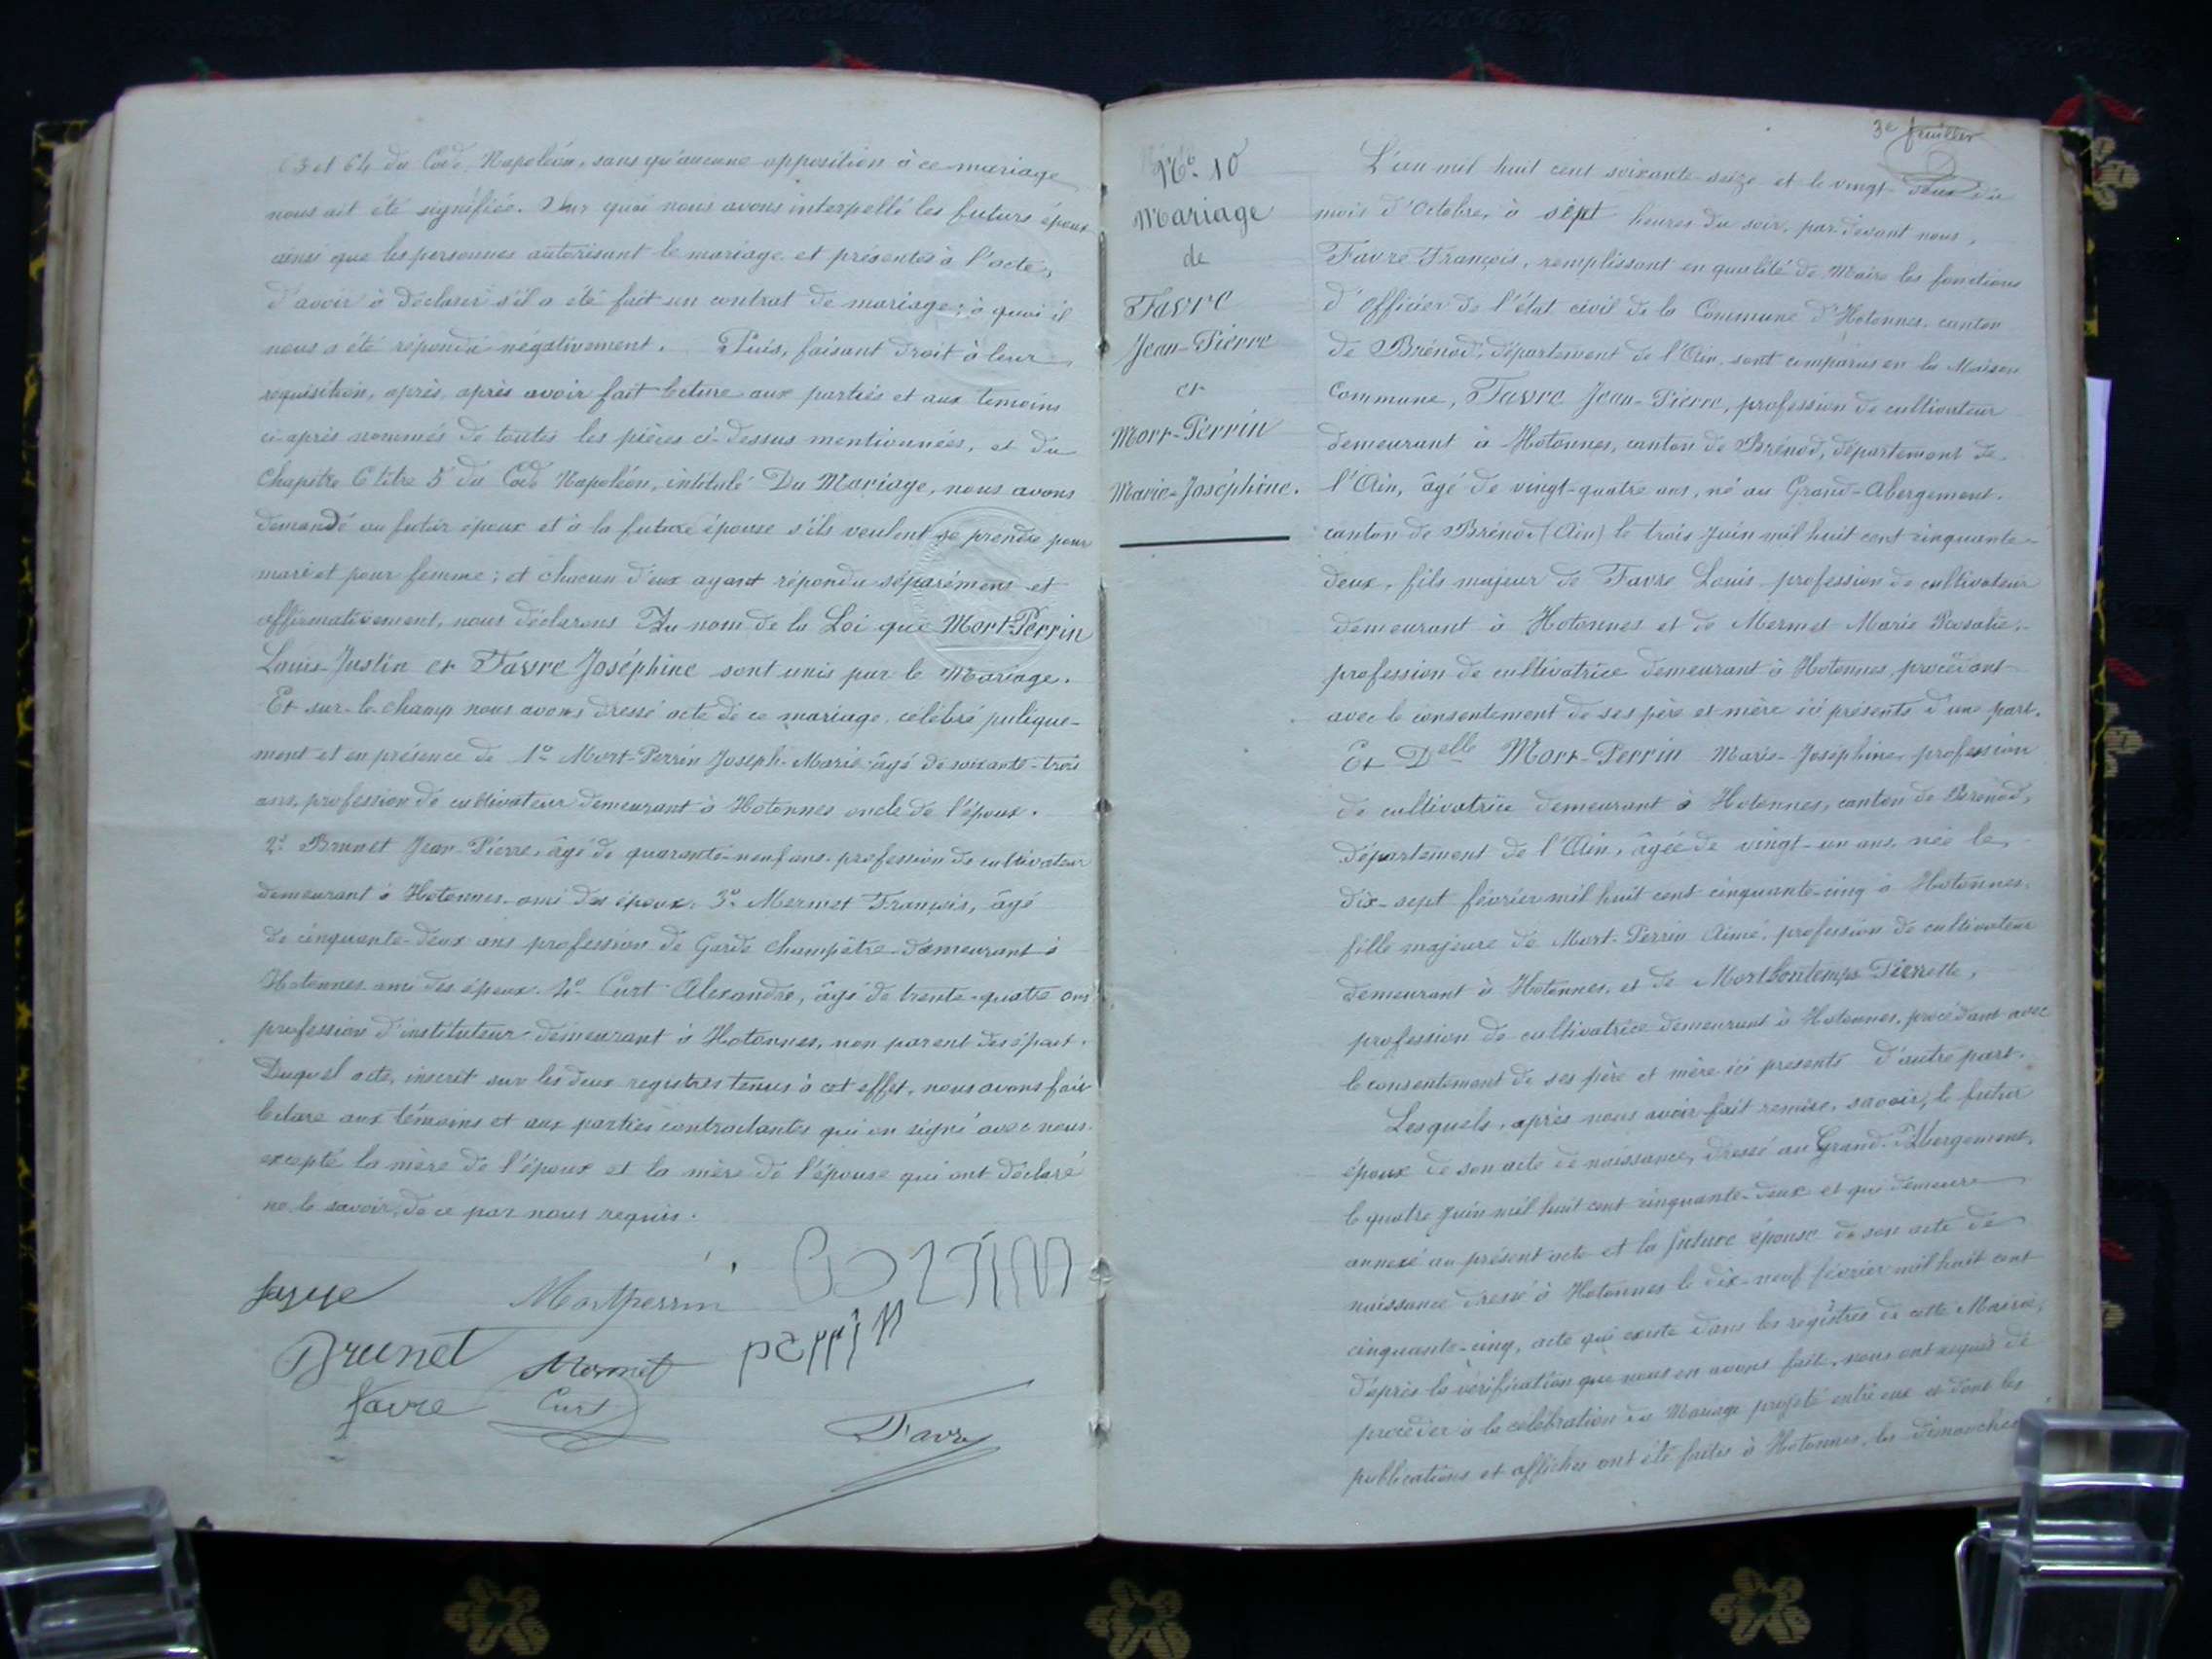 63 et 64 du Code Napoléon, sans qu'aucune opposition à ce mariage
nous ait été signifiée. Sur quoi nous avons interpellé les futurs époux
ainsi que les personnes autorisant le mariage et présentes à l'acte,
d'avoir à déclarer s'il a été fait un contrat de mariage; à quoi il
nous a été répondu négativement. Puis, faisant droit à leur
requisition, après, après avoir fait lecture aux parties et aux temoins
ci-après nommés de toutes les pièces ci-dessus mentionnées, et du
Chapitre 6 titre 5 du Code Napoléon, intitulé Du Mariage, nous avons
demandé au futur époux et à la future épouse s'ils veulent se prendre pour
mari et pour femme; et chacun d'eux ayant répondu séparément et
affirmativement, nous déclarons Au nom de la Loi que Mort-Perrin
Louis-Justin et Favre Joséphine sont unis par le Mariage.
Et sur-le-champ nous avons dressé acte de ce mariage, célébré pulique-
ment et en présence de 1º Mort-Perrin Joseph-Marie âgé de soixante-trois
ans, profession de cultivateur demeurant à Hotonnes oncle de l'époux.
2º Brunet Jean-Pierre, âgé de quarante-neuf ans profession de cultivateur
demeurant à Hotonnes ami des époux. 3º Mermet François, âgé
de cinquante-deux ans profession de Garde champêtre demeurant à
Hotonnes ami des époux. 4º Curt Alexandre, âgé de trente-quatre ans
profession d'instituteur demeurant à Hotonnes, non parent des époux.
Duquel acte, inscrit sur les deux registres tenus à cet effet, nous avons fait
lecture aux témoins et aux parties contractantes qui on signé avec nous
excepté la mère de l'époux et la mère de l'épouse qui ont déclaré
ne le savoir, de ce par nous requis.
Montperrin
Brunet Mermet perrin
favre Curt
Favre
3e feuillet
No. 10
Mariage
de
Favre
Jean-Pierre
et
Mort-Perrin
Marie-Joséphine.
L'an mil huit cent soixante-seize et le vingt-deux du
mois d'Octobre, à sept heures du soir, par-devant nous,
Favre François, remplissant en qualité de Maire les fonctions
d'Officier de l'état civil de la Commune d'Hotonnes, canton
de Brénod, département de l'Ain, sont comparus en la Maison
Commune, Favre Jean-Pierre, profession de cultivateur
demeurant à Hotonnes, canton de Brénod, département de
l'Ain, âgé de vingt-quatre ans, né au Grand-Abergement.
canton de Brénod (Ain) le trois Juin mil huit cent cinquante-
deux, fils majeur de Favre Louis profession de cultivateur
demeurant à Hotonnes et de Mermet Marie Rosalie,
profession de cultivatrice demeurant à Hotonnes, procédant
avec le consentement de ses père et mère ici présents d'une part.
Et Delle Mort-Perrin Marie-Joséphine, profession
de cultivatrice demeurant à Hotonnes, canton de Brénod,
département de l'Ain, âgée de vingt-un ans, née le
dix-sept février mil huit cent cinquante-cinq à Hotonnes,
fille majeure de Mort-Perrin Aimé, profession de cultivateur
demeurant à Hotonnes, et de Mortbontemps Pierrette,
profession de cultivatrice demeurant à Hotonnes, procédant avec
le consentement de ses père et mère ici présents d'autre part.
Lesquels, après nous avoir fait remise, savoir, le futur
époux de son acte de naissance, dressé au Grand-Abergement,
le quatre Juin mil huit cent cinquante-deux et qui demeure
annexé au présent acte et la future épouse de son acte de
naissance dressé à Hotonnes le dix-neuf février mil huit cent
cinquante-cinq, acte qui existe dans les registres de cette Mairie,
d'après la vérification que nous en avons faite, nous ont requis de
procéder à la célébration du Mariage projeté entre eux et dont les
publications et affiches ont été faites à Hotonnes, les dimanches